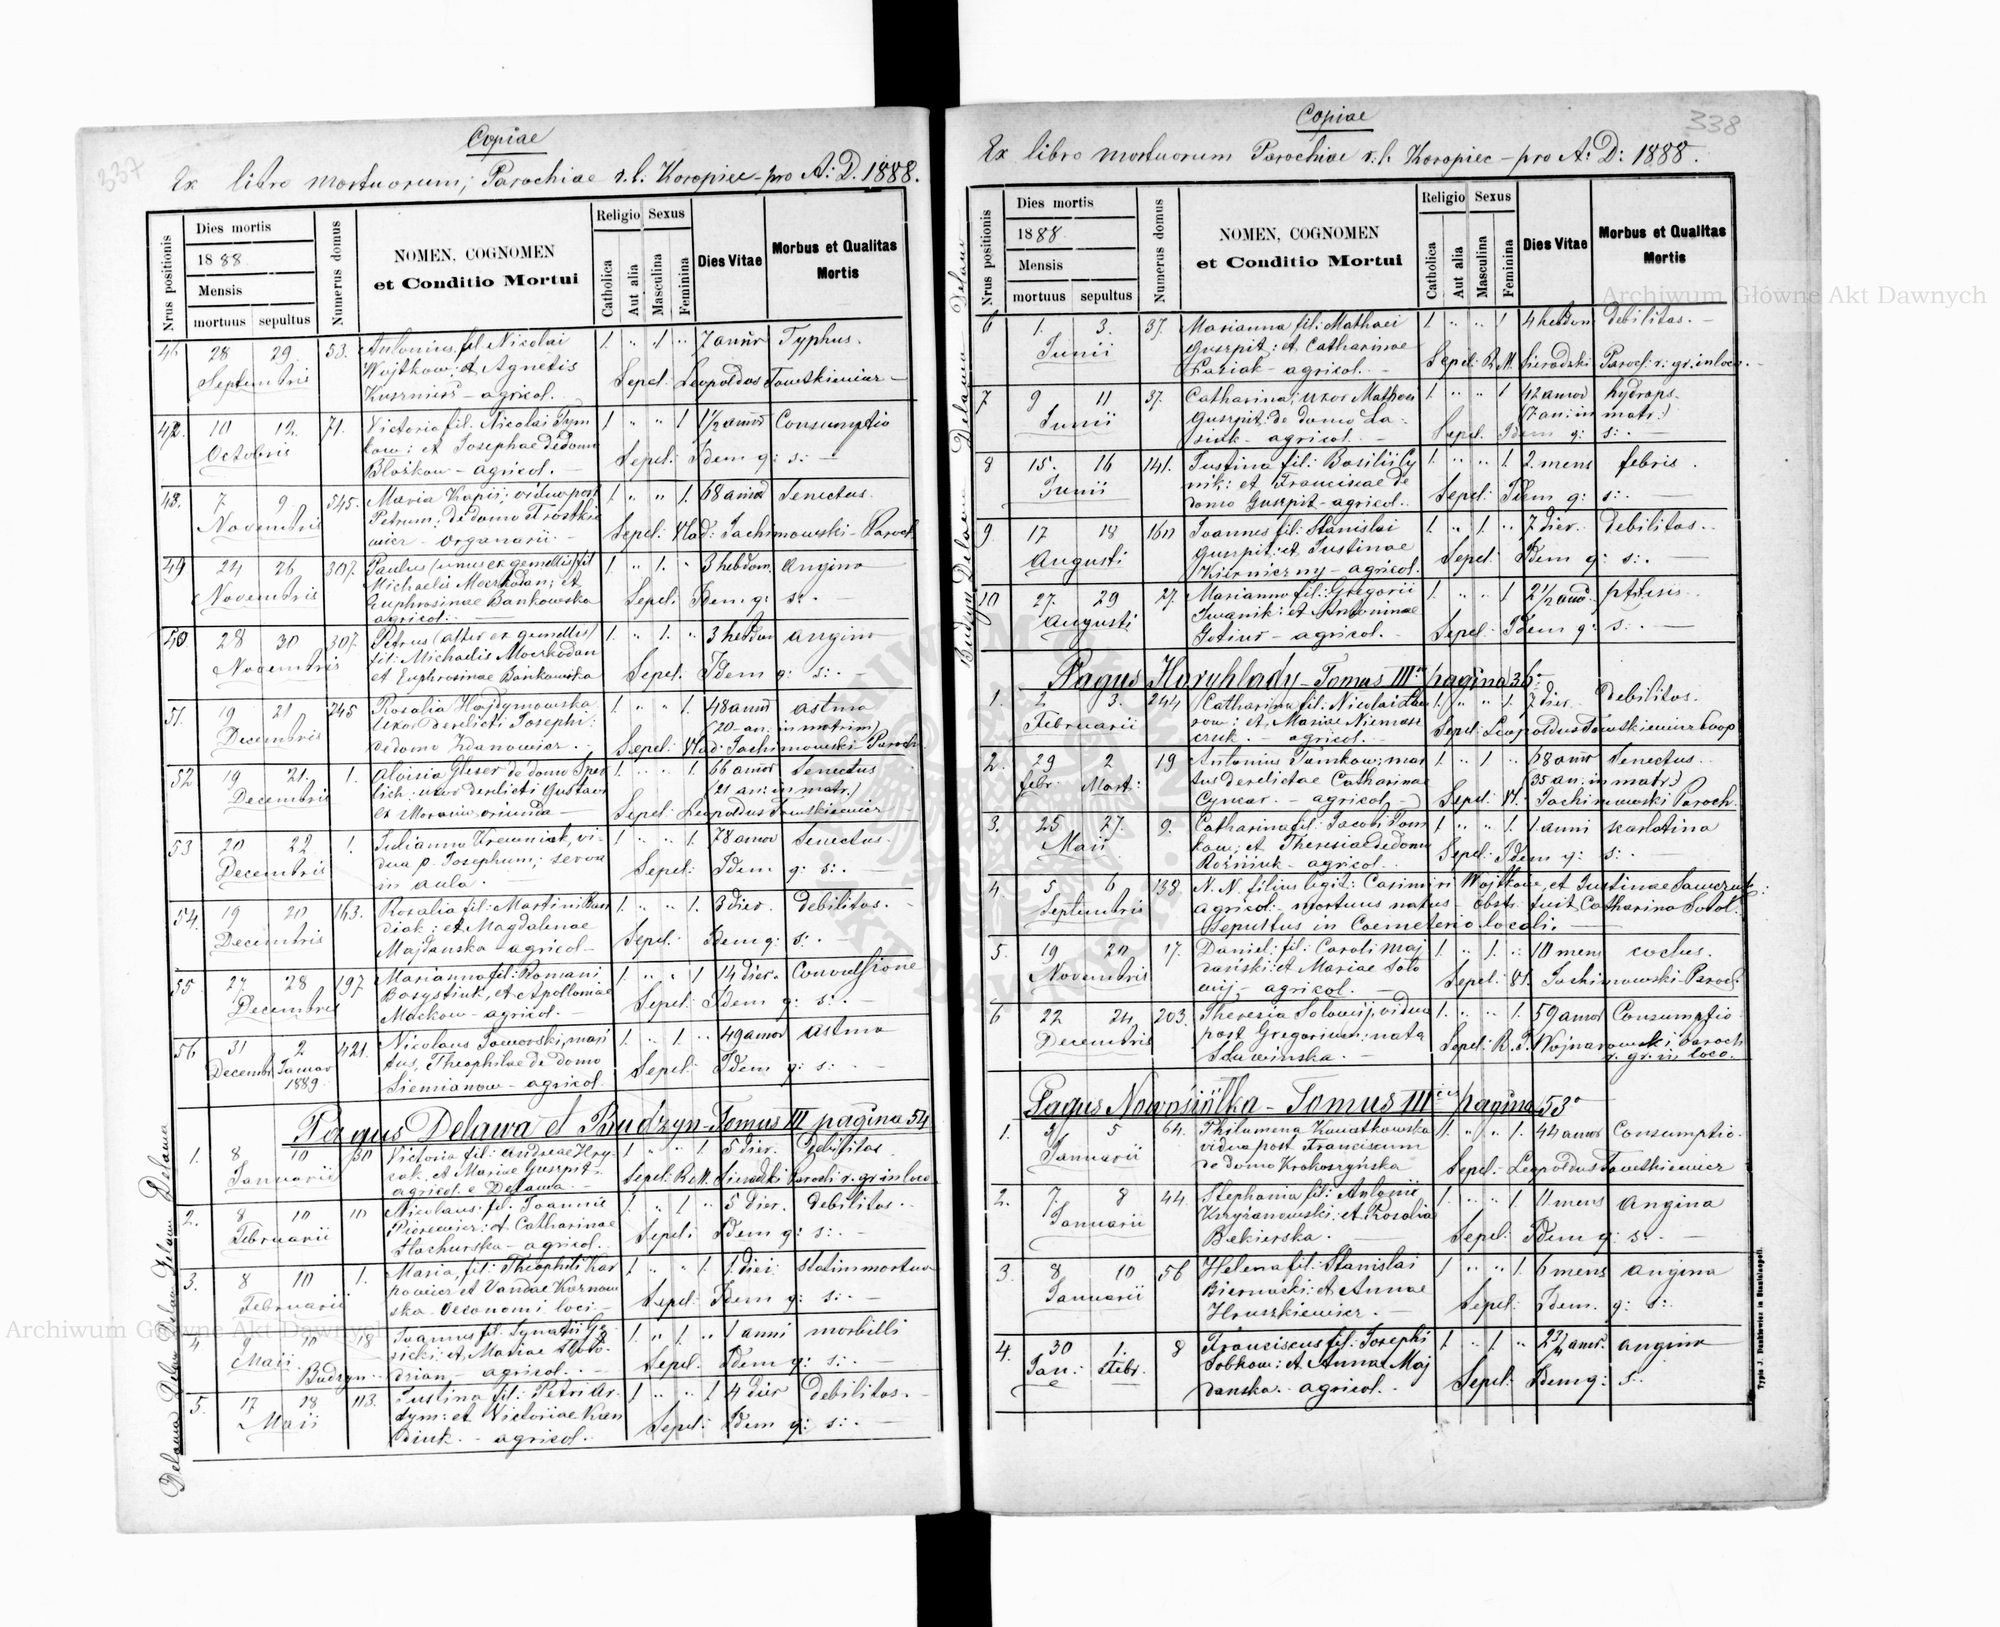 337
Copiae
Ex libro mortuorum, Parochiae r. l. Koropiec - pro A: D. 1888.
Nrus positionis
Dies mortis
1888
Mensis
mortuus sepultus
Numerus domus
NOMEN, COGNOMEN
et Conditio Mortui
Religio Sexus
Catholica
Aut alia
Masculina
Feminina
Dies Vitae
Morbus et Qualitas
Mortis
28 29 53. Antonius, fil Nicolai 1. " 1 " 7 annor Typhus.
Septembris Wojtkow: et Agnetis
agricol. Sepel: Leopoldus
10 12. 71. Victoria fil. Nicolai Tym 1 " " 1 1 1/2 annor Consumptio
Octobris kow: et Josephae de domo
agricol. Sepel: Idem q: s: -
48. 7 9 545. Maria Kapij, vidua post 1 " " 1. 68 annor Senectus.
Novembris Petrum, de domo
organarii Sepel: Vlad: Jachimowski - Paroch
49 24 26 307. Paulus (unus ex gemellis) fil 1 " 1. " 3 hebdom. angina
Novembris Michaelis Moczkodan; et
Euphrosinae Bankowska Sepel: Idem q: s: -
agricol:
50. 28 30 307. Petrus (alter ex gemellis) 1. " 1. " 3 hebdom angina
Novembris fil: Michaelis Moczkodan
et Euphrosinae Bankowska Sepel: Idem q: s: -
51. 19 21 245 Rosalia Hajdymowska 1. " " 1 48 annor astma
Decembris uxor derelicti Josephi: (20 - an: in matrim)
de domo Zdanowicz. Sepel: Vlad: Jachimowski Paroch
52 19 21. 1. Aloisia Gleser de domo 1. " " 1. 66 annor Senectus
Decembris uxor derelicti Gustavi (21 an: in matr:)
ex Moravia oriunda Sepel: Leopoldus
53 20 22 1. Julianna vi- 1 " " 1. 78 annor Senectus.
Decembris dua p. Josephum; serva
in aula. Sepel: Idem q: s: -
54. 19 20 163. Rosalia fil: Martini 1. " " 1. 3 dier. debilitas.
Decembris diak: et Magdalenae
Majdanska agricol - Sepel: Idem q: s: -
55 27 28 197 Marianna fil: Romani 1 " " 1 14 dier. Convulsione
Decembris et Apolloniae
Mackow - agricol. Sepel: Idem q: s: -
56 31 2 421. Nicolaus Jaworski, mari 1. " 1 " 49 annor astma
Decembr. Januar tus, Theophilae de domo
1889 Siemianow - agricol. Sepel: Idem q: s: -
Pagus Delawa et Budzyn - Tomus III pagina 54
1. 8 10 30 Victoria fil: Andreae 1 " " 1 5 dier. Debilitas
Januarii et Mariae Guszpit
agricol. e Delawa Sepel: R. M. Sieradzki Paroch r. gr. in loco
2. 8 10 10 Nicolaus fil. Joannis 1 " 1 " 5 dier. debilitas.
Februarii et Catharinae
Stachurska - agricol. Sepel: Idem q: s: -
3. 8 10 1. Maria, fil: Theophili Kar 1 " " 1 1 diei statim mortua
Februarii powicz et Vandae
ska Oeconomi loci - Sepel: Idem q: s: -
4 9 10 18 Joannes fil. Ignatii 1 " 1. " 1 anni morbilli
Maii et Mariae
Budzyn agricol. Sepel: Idem q: s: -
5. 17 18 113. Justina fil: Petri 1 " " 1 4 dier debilitas.
Maii et Victoriae
agricol. Sepel: Idem q: s: -
Delawa Delawa Delawa Delawa Delawa
338
Copiae
Ex libro mortuorum Parochiae r. l. Koropiec - pro A: D: 1888.
Nrus positionis
Dies mortis
1888
Mensis
mortuus sepultus
Numerus domus
NOMEN, COGNOMEN
et Conditio Mortui
Religio Sexus
Catholica
Aut alia
Masculina
Feminina
Dies Vitae
Morbus et Qualitas
Mortis
6 1. 3. 37. Marianna fil: Mathaei 1. " " 1 4 hebdom debilitas. -
Junii Guszpit: et Catharinae
agricol. Sepel: R. M. Sieradzki Paroch: r: gr: in loco.
7 9 11 37. Catharina, uxor Mathaei 1 " " 1 42 annor hydrops.
Junii Guszpit: de domo (7 an: in matr:)
agricol. Sepel. Idem q: s: -
8 15. 16 141. Justina fil: Basilii 1. " " 1. 2 mens febris.
Junii et Franciscae de
domo Guszpit - agricol. Sepel: Idem q: s: -
9 17 18 Joannes fil: Stanislai 1. " 1. " 7 dier. debilitas.
Augusti Guszpit: et Justinae
agricol. Sepel: Idem q: s: -
10 27. 29 27. Marianna fil: Gregorii 1. " " 1 2 1/2 annor phtisis.
Augusti Iwanik: et Antoninae
agricol. Sepel: Idem q: s: -
Budzyn Delawa Delawa Delawa Delawa
Pagus Horyhlady - Tomus III pagina 36
1. 2 3. 244 Catharina fil: Nicolai 1. " " 1. 7 dier. debilitas.
Februarii et Mariae
agricol. Sepel: Leopoldus Coop
2. 29 2 19 Antonius Tumkow; mari 1. " 1 " 68 annor Senectus.
febr. Mart: tus derelictae Catharinae (35 an: in matr:)
agricol. Sepel: Vl. Jachimowski Paroch.
3. 25 27. 9. Catharina fil: Jacobi Tom 1. " " 1. 1 anni skarlatina
Maii kow; et Theresiae de domo
agricol. Sepel: Idem q: s: -
4. 5 6 138 N. N. filius legit: Casimiri Wojtkow, et Justinae
Septembris agricol. mortuus natus - obstr. fuit Catharina
Sepultus in Coemeterio locali. -
5. 19 20 17. Daniel: fil: Caroli Maj 1. " 1. " 10 mens
Novembris dański: et Mariae Solo
wij, agricol. Sepel: Vl. Jachimowski Paroch.
6 22 24 203. Theresia Solowij, vidua 1. " " 1. 59 annor Consumptio
Decembris post Gregorium: nata
Sepel: R. T. Wojnarowski Paroch
r. gr. in loco.
Pagus Nowosiółka - Tomus III pagina 53
1. 3 5 64. Philomena Kwiatkowska 1. " " 1. 44 annor Consumptio.
Januarii vidua post Franciscum
de domo Krokoszyńska Sepel: Leopoldus
2. 7. 8 44. Stephania fil: Antonii 1. " " 1 11 mens angina
Januarii Krzyżanowski; et Rosalia
Bekierska. Sepel: Idem q: s: -
3. 8. 10 56 Helena fil: Stanislai 1 " " 1. 6 mens angina
Januarii Biernacki: et Annae
Hruszkiewicz. Sepel: Idem. q: s:.
4. 30 1. 8 Franciscus fil: Josephi 1. " 1. " annor. angina
Jan: Febr. Sobkow: et Annae Maj
danska. agricol. Sepel: Idem q: s:
Typis J. Dankiewicz in Stanislaopoli.
Archiwum Główne Akt Dawnych
Archiwum Główne Akt Dawnych